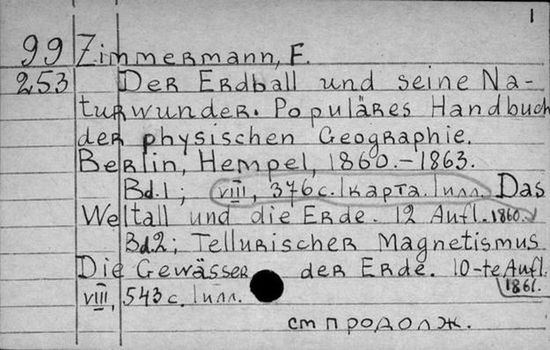 1
99 Zimmermann, F.
253 Der Erdball und seine Na-
turwunder. Populäres Handbuch
der physischen Geographie.
Berlin, Hempel, 1860.-1863.
Bd.1; VIII, 376 с. 1 карта. 1 илл. Das
Weltall und die Erde. 12 Aufl. 1860.
Bd.2; Tellurischer Magnetismus
Die Gewässer der Erde. 10-te Aufl.
1861.
VIII, 543 с. 1 илл.
см продолж.